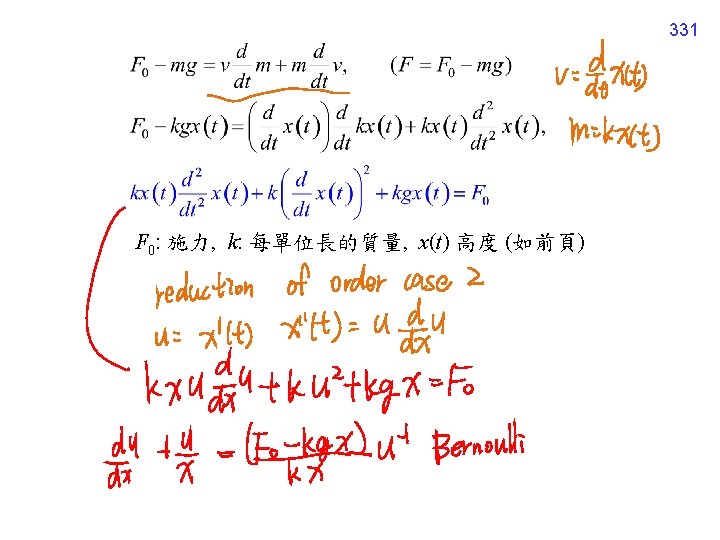 331
F₀ − mg = v d/dt m + m d/dt v, (F = F₀ − mg)
v = d/dt x(t)
F₀ − kgx(t) = (d/dt x(t)) d/dt kx(t) + kx(t) d²/dt² x(t),
m = kx(t)
kx(t) d²/dt² x(t) + k(d/dt x(t))² + kgx(t) = F₀
F₀: 施力, k: 每單位長的質量, x(t) 高度 (如前頁)
reduction of order case 2
u = x'(t) x''(t) = u d/dx u
kxu d/dx u + ku² + kgx = F₀
du/dx + u/x = (F₀ − kgx)/kx u⁻¹ Bernoulli